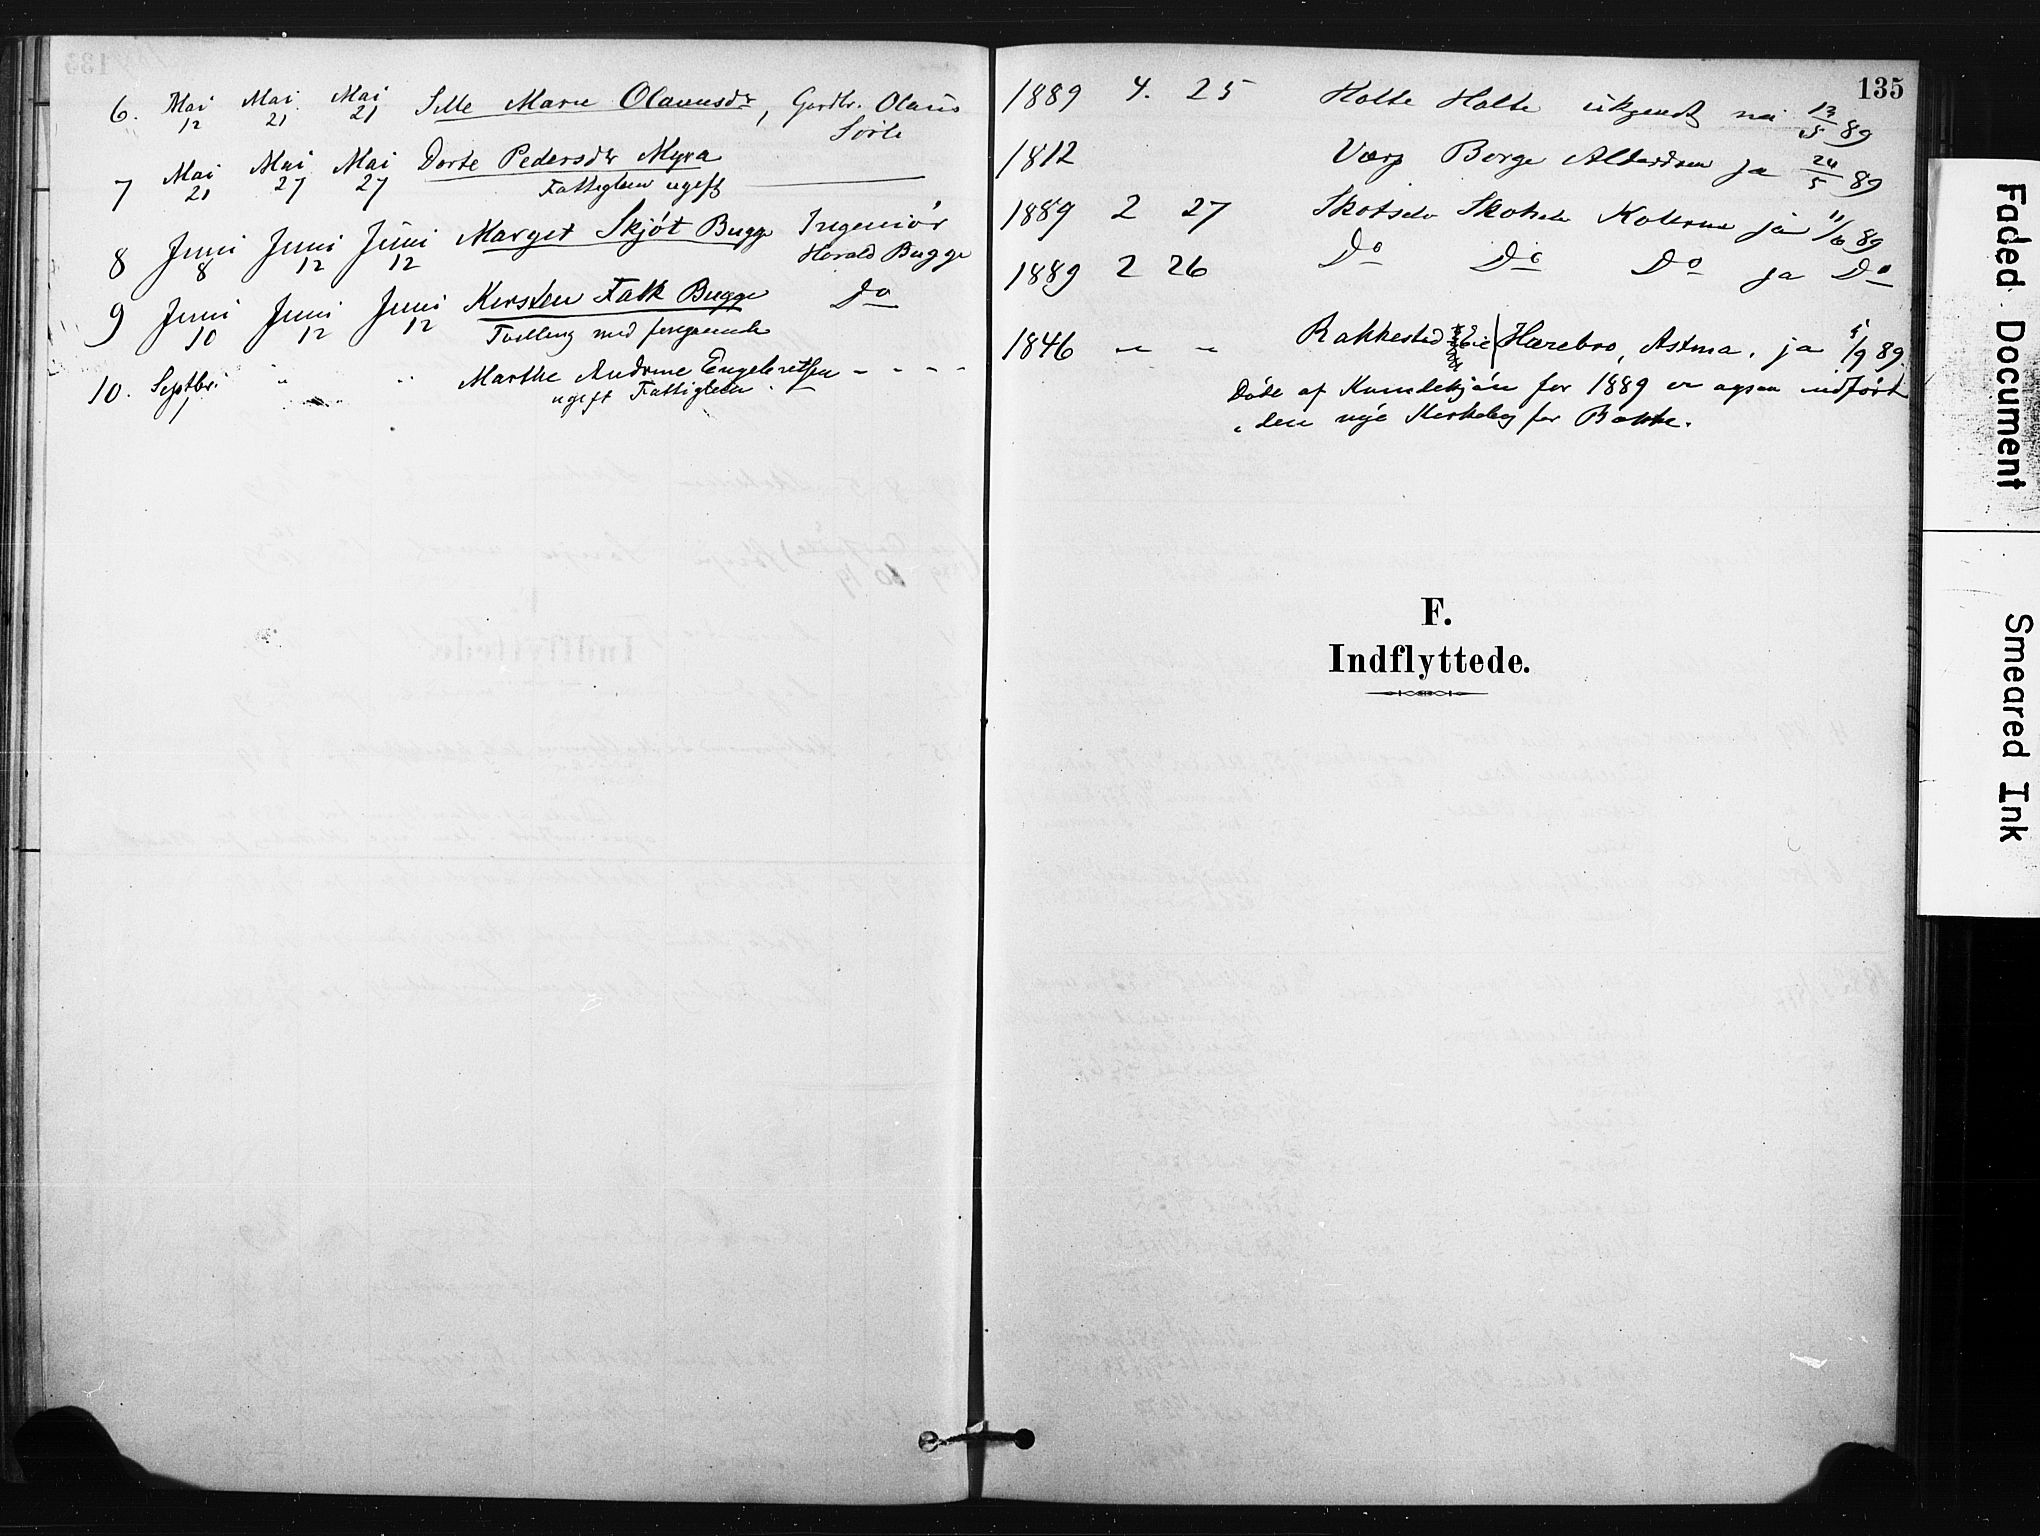 135
6. Mai 12 Mai 21 Mai 21 Marie Olausdr, Gardbr. Olaus
1889 4. 25 Holte Holte ukjendt nei 13/5 89
7 Mai 21 Mai 27 Mai 27 Dorte Pedersdr Myra
Fattiglem ugift
1812 Berge ja 24/5 89
8 Juni 8 Juni 12 Juni 12 Marget Skjöt Bugge Ingeniör
Harald Bugge
1889 2 27 ja 11/6 89
9 Juni 10 Juni 12 Juni 12 Kirsten Falk Bugge Do
Tvilling med foregaaende
1889 2 26 Do Do Do ja Do
10. Septbr 1 " " Marthe Andrine Engebretsen - - - -
ugift Fattiglem
1846 " " Rakkestad Harebro, Astma. ja 5/9 89.
Döde af for 1889 er ogsaa indfört
i den nye Kirkebog for Bakke.
F.
Indflyttede.
Faded Document
Smeared Ink